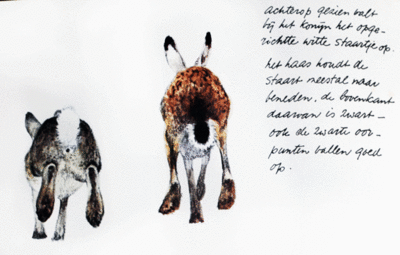 achterop gezien valt
bij het konijn het opge-
richtte witte staartje op.
het haas houdt de
staart meestal naar
beneden, de bovenkant
daarvan is zwart –
ook de zwarte oor-
punten vallen goed
op.